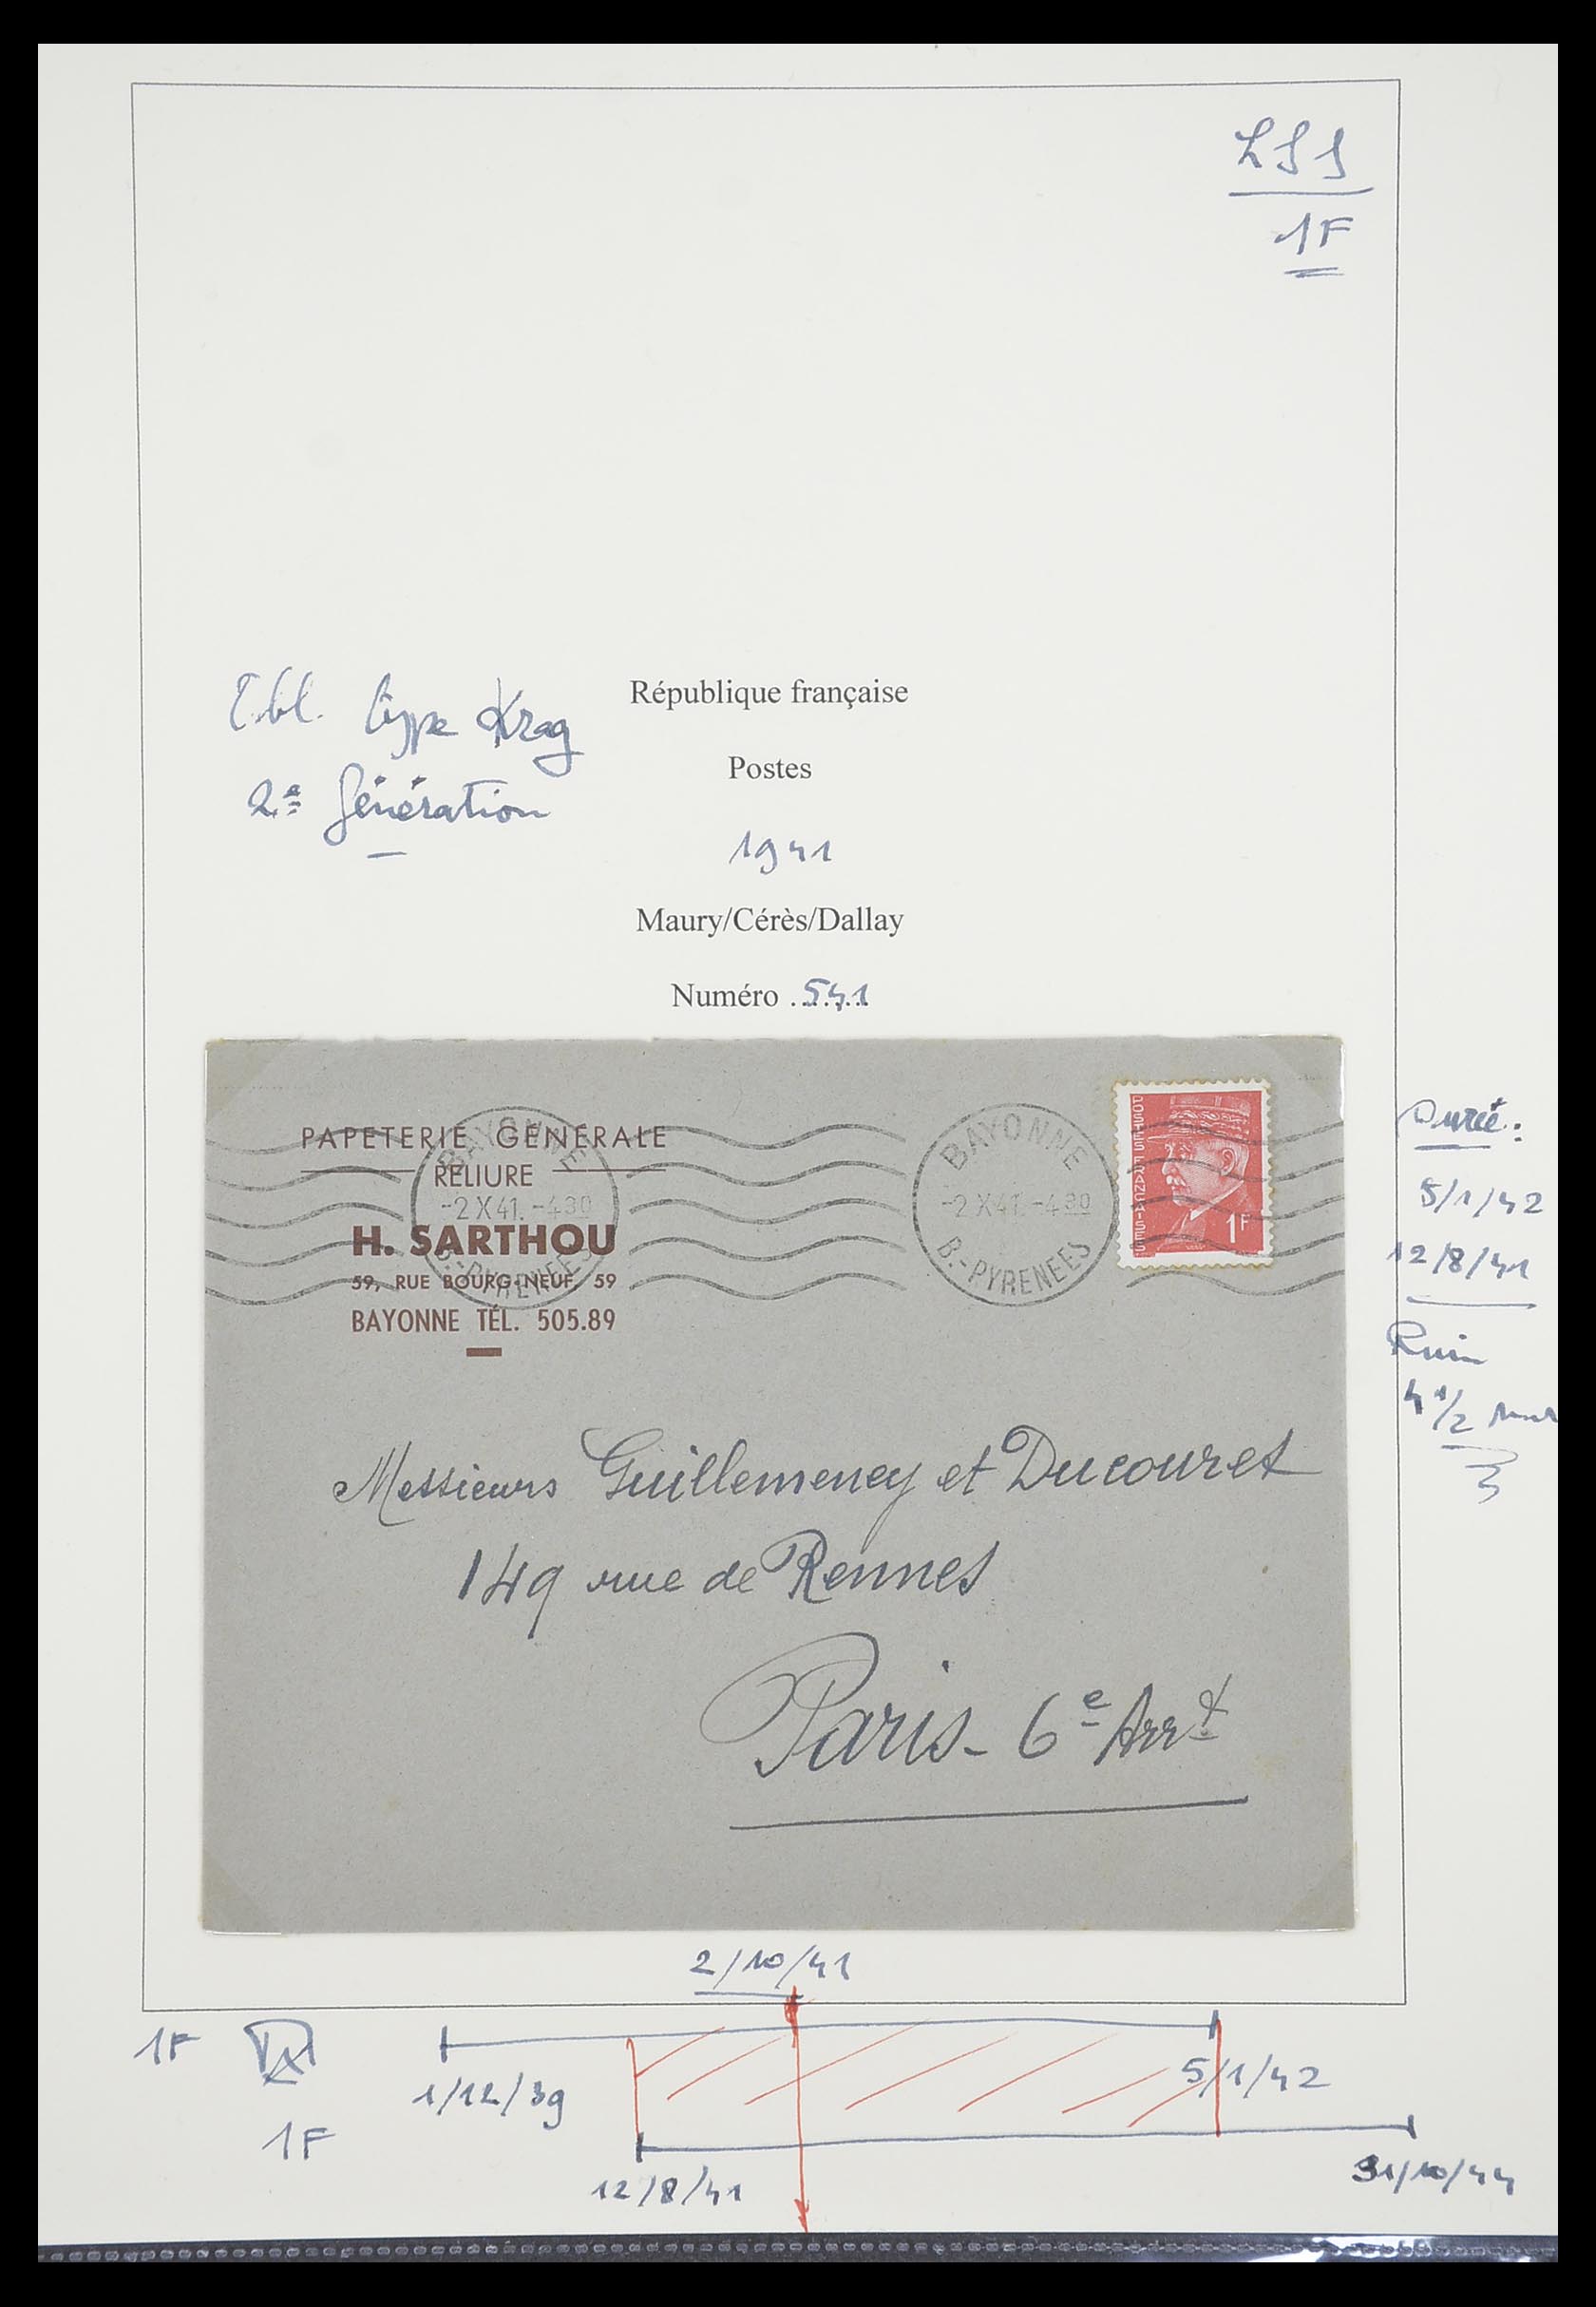 LSS
1F
République française
Obl. type Krag
Postes
2e Génération
1941
Maury/Cérès/Dallay
Numéro ........ 541
PAPETERIE GÉNÉRALE
RELIURE
H. SARTHOU
59, RUE BOURG-NEUF, 59
BAYONNE TÉL. 505.89
BAYONNE
-2 X 41. -4 30
B.-PYRENEES
BAYONNE
-2 X 41. -4 30
B.-PYRENEES
POSTES FRANÇAISES
1F
Messieurs Guillemeney et Ducouret
149 rue de Rennes
Paris - 6e Arrt
Durée :
5/1/42
12/8/41
4 1/2
2/10/41
1F
1/12/39
5/1/42
1F
12/8/41
31/10/44